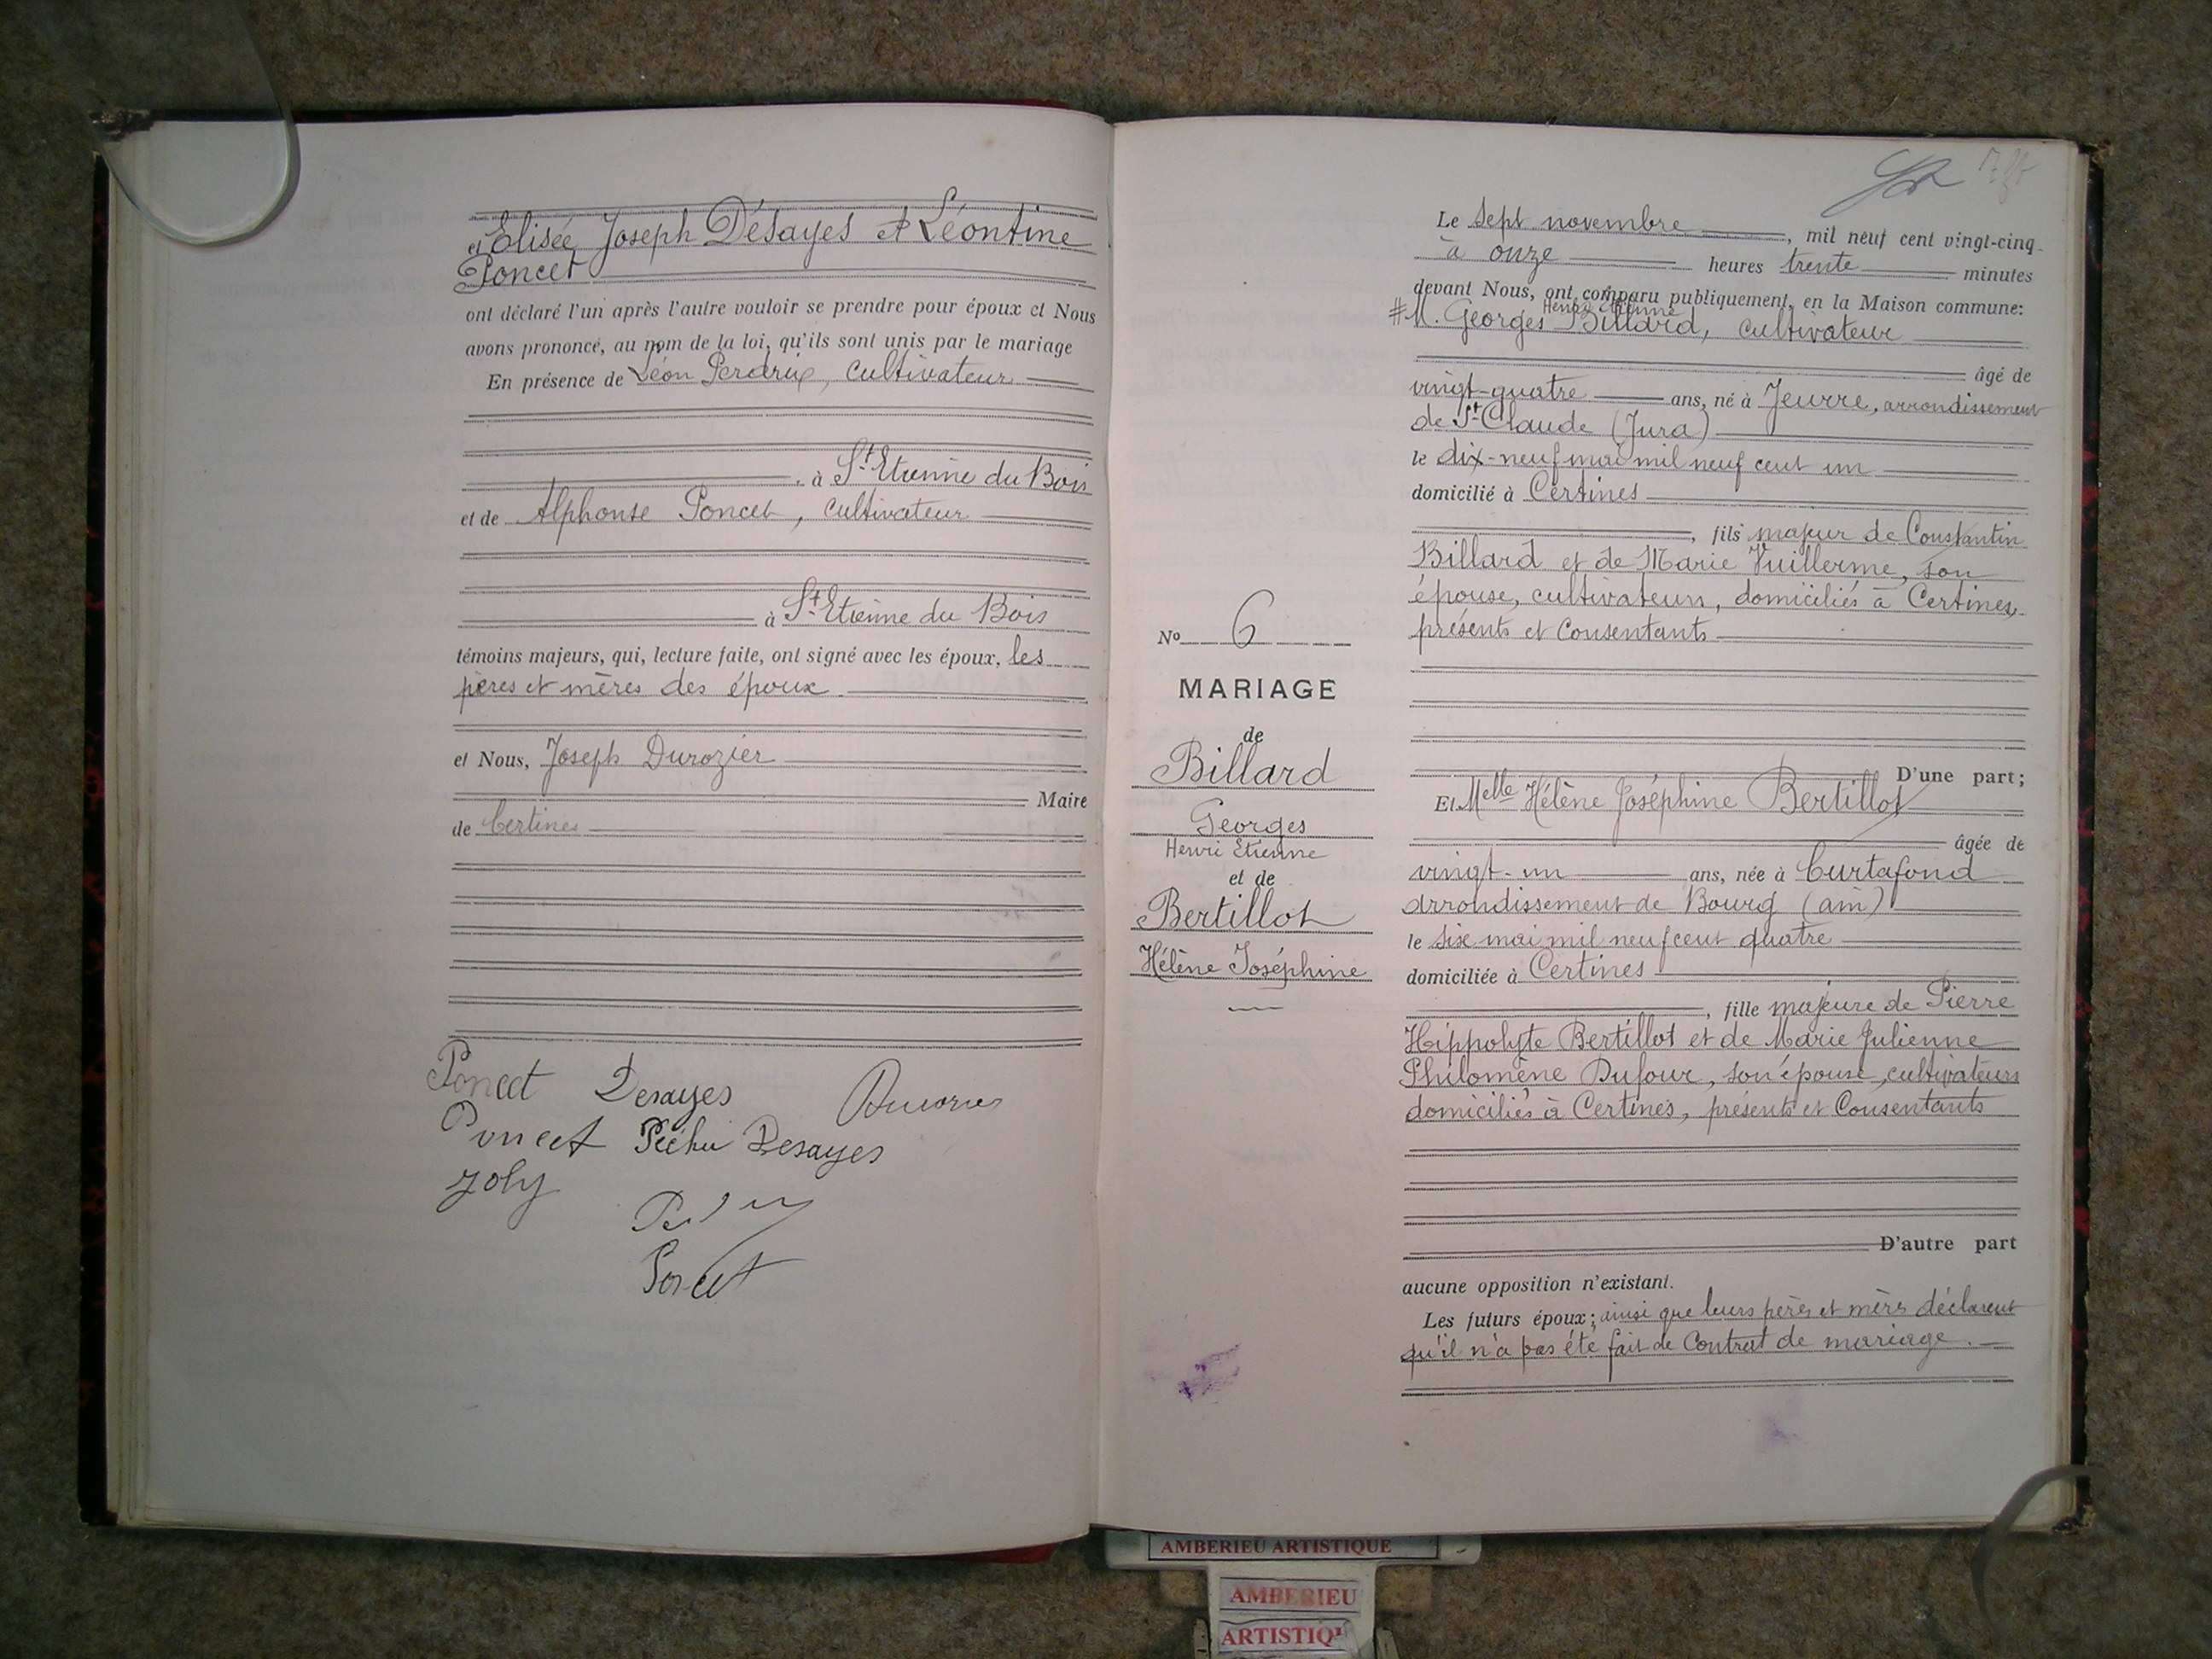 et Elisée Joseph Désayes et Léontine
Poncet
ont déclaré l'un après l'autre vouloir se prendre pour époux et Nous
avons prononcé, au nom de la loi, qu'ils sont unis par le mariage
En présence de Léon Perdrix, cultivateur
, à St Etienne du Bois
et de Alphonse Poncet, cultivateur
à St Etienne du Bois
témoins majeurs, qui, lecture faite, ont signé avec les époux, les
pères et mères des époux.
et Nous, Joseph Durozier
Maire
de Certines
Poncet Desayes
Poncet Péchu Desayes
Joly
Poncet
N° 6
MARIAGE
de
Billard
Georges
Henri Etienne
et de
Bertillot
Hélène Joséphine
Le sept novembre, mil neuf cent vingt-cinq
à onze heures trente minutes
devant Nous, ont comparu publiquement, en la Maison commune:
Henri Etienne
# M. Georges Billard, cultivateur
âgé de
vingt-quatre ans, né à Jeurre, arrondissement
de St Claude (Jura)
le dix-neuf mai mil neuf cent un
domicilié à Certines
, fils majeur de Constantin
Billard et de Marie Vuillerme, son
épouse, cultivateurs, domiciliés à Certines,
présents et consentants
D'une part;
Et Melle Hélène Joséphine Bertillot
âgée de
vingt-un ans, née à Curtafond
arrondissement de Bourg (ain)
le six mai mil neuf cent quatre
domiciliée à Certines
, fille majeure de Pierre
Hippolyte Bertillot et de Marie Julienne
Philomène Dufour, son épouse, cultivateurs
domiciliés à Certines, présents et consentants
D'autre part
aucune opposition n'existant.
Les futurs époux; ainsi que leurs pères et mères déclarent
qu'il n'a pas été fait de contrat de mariage.
AMBERIEU ARTISTIQUE
AMBERIEU
ARTISTIQ